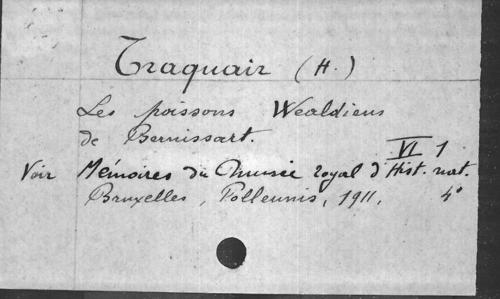 Traquair (H.)
Les poissons Wealdiens
de Bernissart.
VI 1
Voir Mémoires du Musée royal d'Hist. nat.
Bruxelles, Polleunis, 1911. 4°